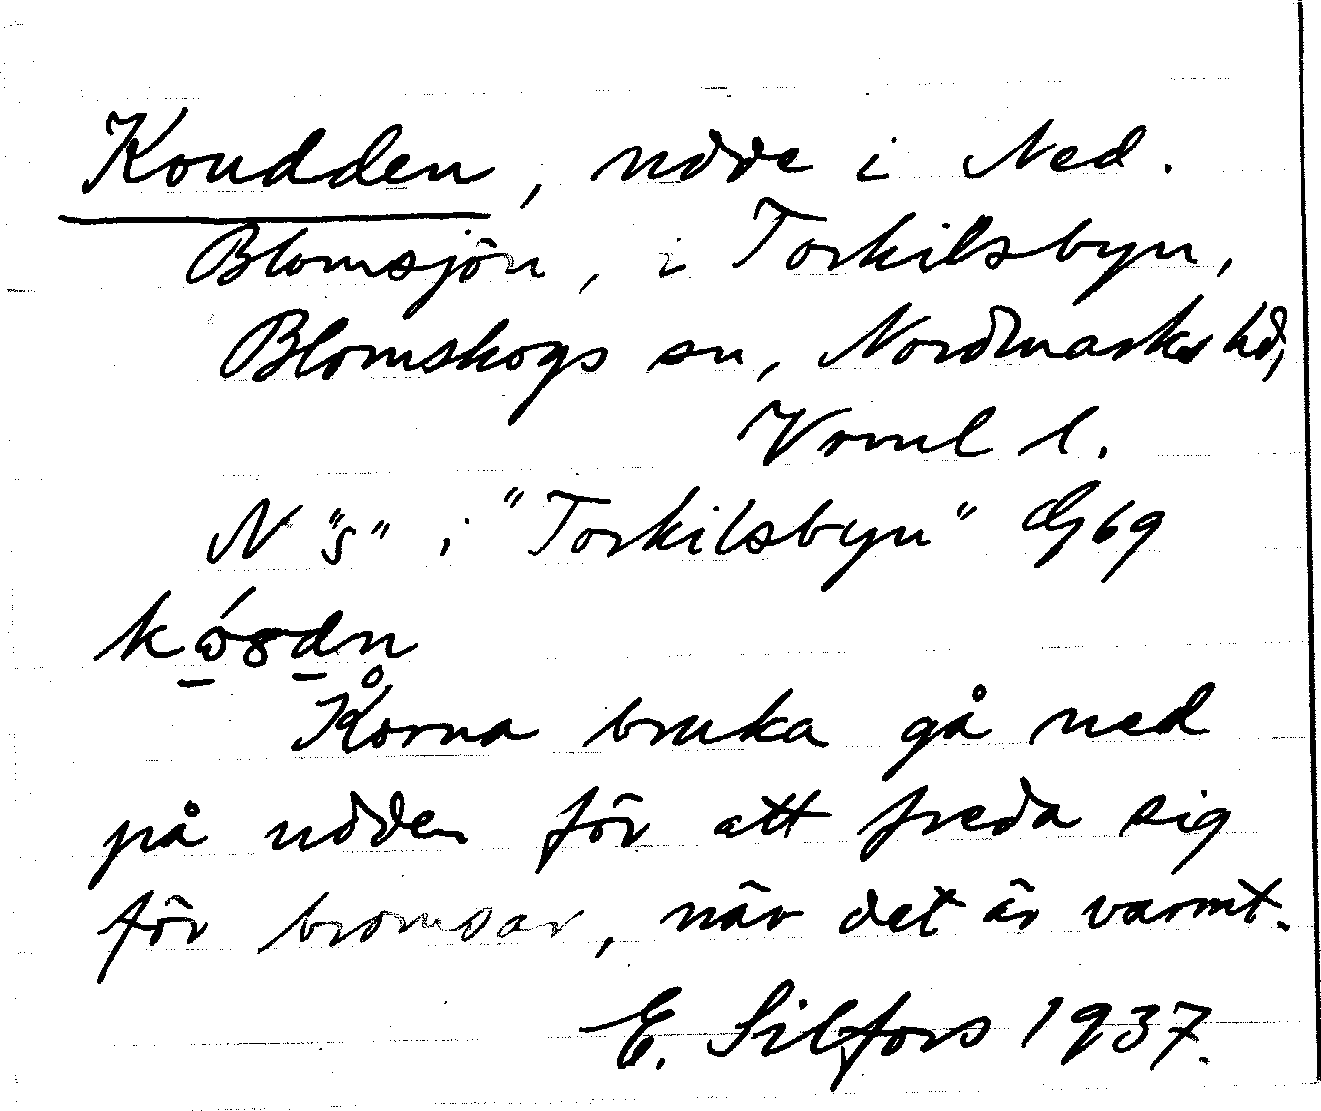 Koudden, udde i Ned.
Blomsjön, i Torkilsbyn,
Blomskogs sn, Nordmarks hd,
Vrml l.
N "s" i "Torkilsbyn" G 69
Korna bruka gå ned
på udden för att freda sig
för bromsar, när det är varmt.
E. Silfors 1937.